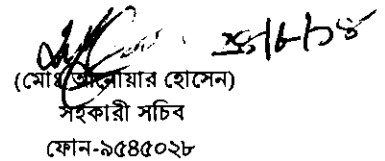 ২৮/৮/১৪
(মোঃ আনোয়ার হোসেন)
সহকারী সচিব
ফোন-৯৫৪৫০২৮